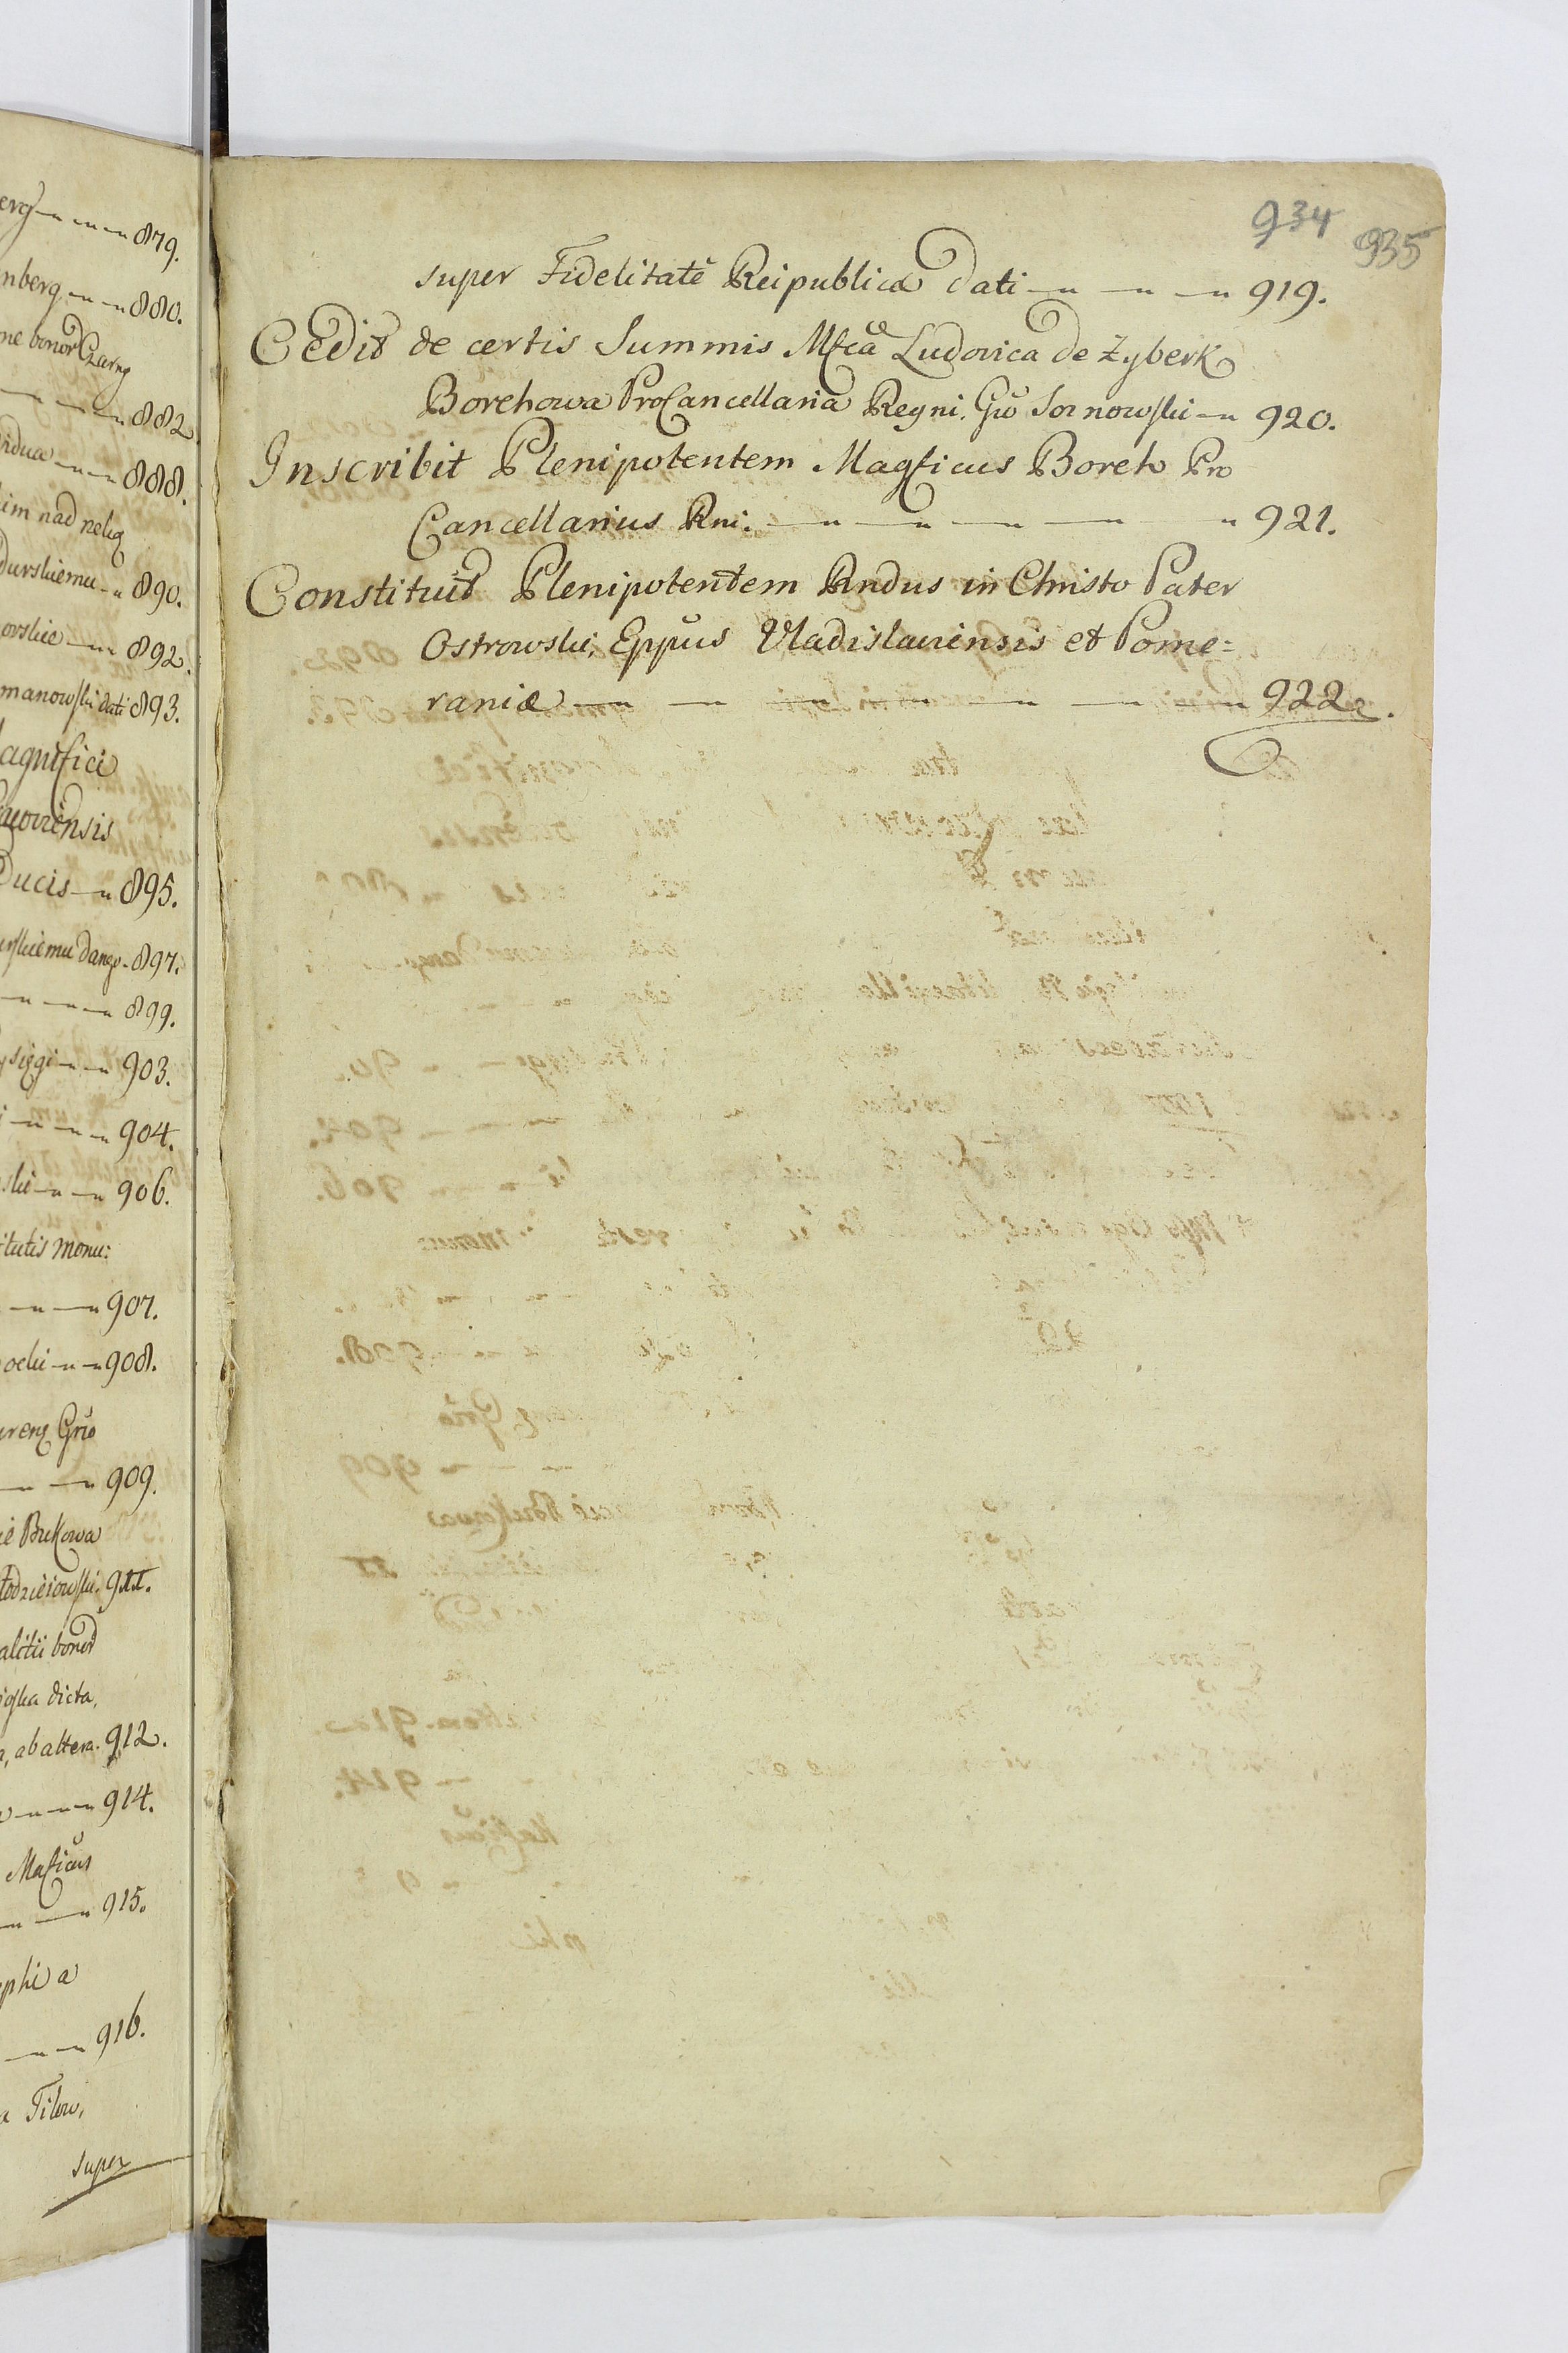 erg 879.
nberg 880.
ne bonor Czarny
882
vidua 888.
kim nad nelig
durskiemu 890.
orskie 892.
manowski dati 893.
agnifici
coviensis
Ducis 895.
urskiemu dango 897.
899.
903.
904.
ski 906.
titutis monu:
907.
ocki 908.
Grō
909.
ie Bukowa
911.
alitii bonor
dicta,
, ab altera. 912.
914.
Mafīcus
915.
phi a
916.
a Filow,
super
934 935
super Fidelitatē Reipublicæ dati 919.
Cedit de certis Summis Mfca Ludovica de Zyberk
Borchowa ProCancellaria Regni. Gō Sornowski 920.
Inscribit Plenipotentem Magficus Borch Pro
Cancellarius Rni. 921.
Constituit Plenipotentem Rndus in Christo Pater
Ostrowski, Eppūs Vladislaviensis et Pome=
raniæ 922.